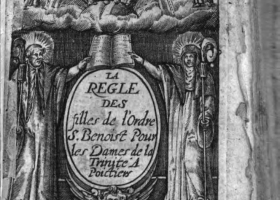 LA
REGLE
DES
filles de l'Ordre
S. Benoist Pour
les Dames de la
Trinite A
Poictiers